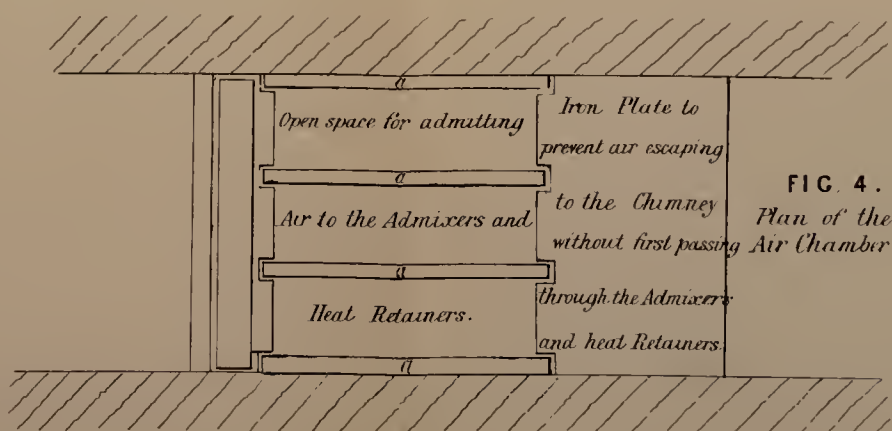 a
Open space for admitting
a
Air to the Admixers and
a
Heat Retainers.
a
Iron Plate to
prevent air escaping
to the Chimney
without first passing
through the Admixers
and heat Retainers.
FIG. 4.
Plan of the
Air Chamber